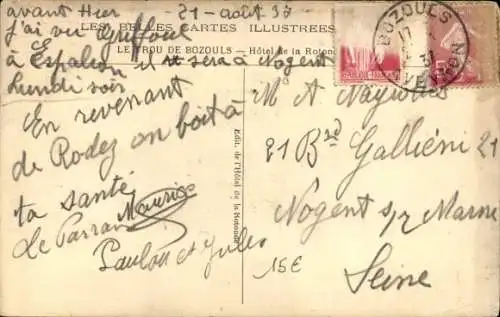 avant Hier 21 - août 37
LES BELLES CARTES ILLUSTREES
j'ai vu Griffoul
LE TROU DE BOZOULS – Hôtel de la Rotonde
à Espalion il sera à Nogent
Lundi soir
En revenant
de Rodez on boit à
ta santé
Le Parrain Maurice
Paulou et Jules
Edit. de l'Hôtel de la Rotonde
BOZOULS
17
31
AVEYRON
M A Nayrolles
21 Bd Galliéni 21
Nogent s/ Marne
Seine
15E